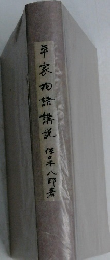 平家物語講説 佐々木八郎著